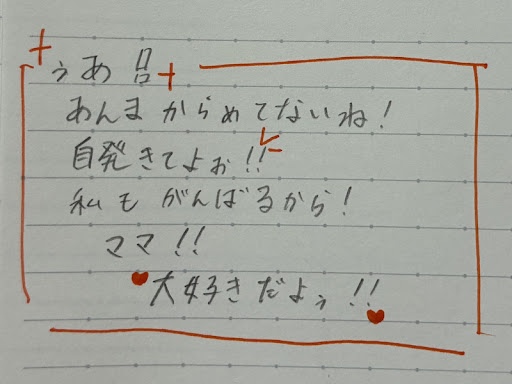 ぅあ 呂
あんま からめてないね!
自発きてよぉ!!
私も がんばるから!
ママ!!
大好きだよぅ!!